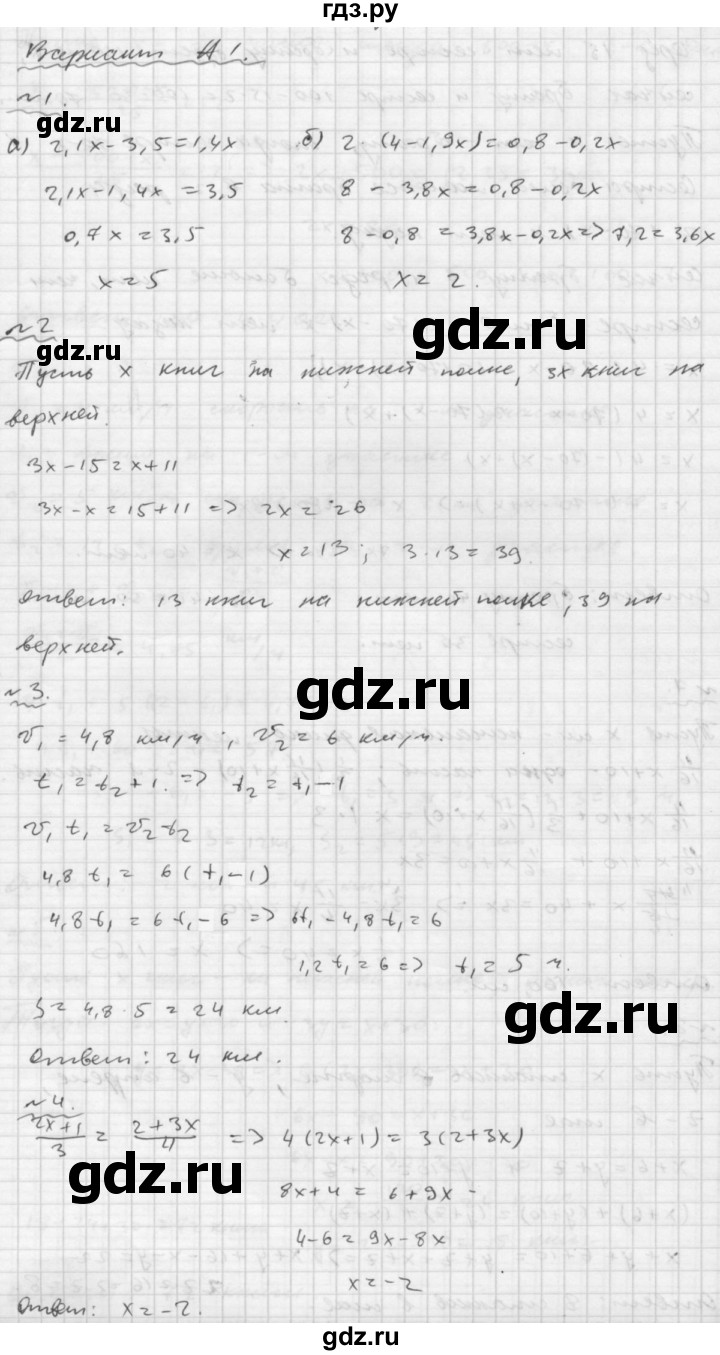 гдз.ру
Вариант А1.
№1.
а) 2,1x - 3,5 = 1,4x б) 2·(4 - 1,9x) = 0,8 - 0,2x
2,1x - 1,4x = 3,5 8 - 3,8x = 0,8 - 0,2x
0,7x = 3,5 8 - 0,8 = 3,8x - 0,2x => 7,2 = 3,6x
x = 5 x = 2.
gdz.ru
№2
Пусть x книг на нижней полке, 3x книг на
верхней.
3x - 15 = x + 11
3x - x = 15 + 11 => 2x = 26
x = 13; 3·13 = 39.
gdz.ru
Ответ: 13 книг на нижней полке; 39 на
верхней.
gdz.ru
№3.
v₁ = 4,8 км/ч; v₂ = 6 км/ч.
t₁ = t₂ + 1. => t₂ = t₁ - 1
v₁ t₁ = v₂ t₂
4,8 t₁ = 6(t₁ - 1)
4,8 t₁ = 6 t₁ - 6 => 6t₁ - 4,8 t₁ = 6
1,2 t₁ = 6 => t₁ = 5 ч.
S = 4,8·5 = 24 км.
gdz.ru
Ответ: 24 км.
№4.
(2x+1)/3 = (2+3x)/4 => 4(2x+1) = 3(2+3x)
gdz.ru
8x + 4 = 6 + 9x
4 - 6 = 9x - 8x
x = -2
Ответ: x = -2.
gdz.ru
gdz.ru